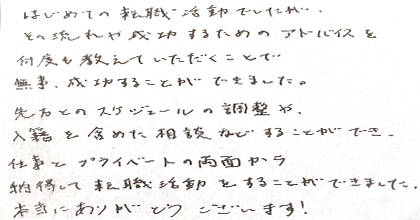 はじめての転職活動でしたが、
その流れや成功するためのアドバイスを
何度も教えていただくことで
無事、成功することができました。
先方とのスケジュールの調整や、
入籍を含めた相談などすることができ、
仕事とプライベートの両面から
納得して転職活動をすることができました。
本当にありがとうございます!